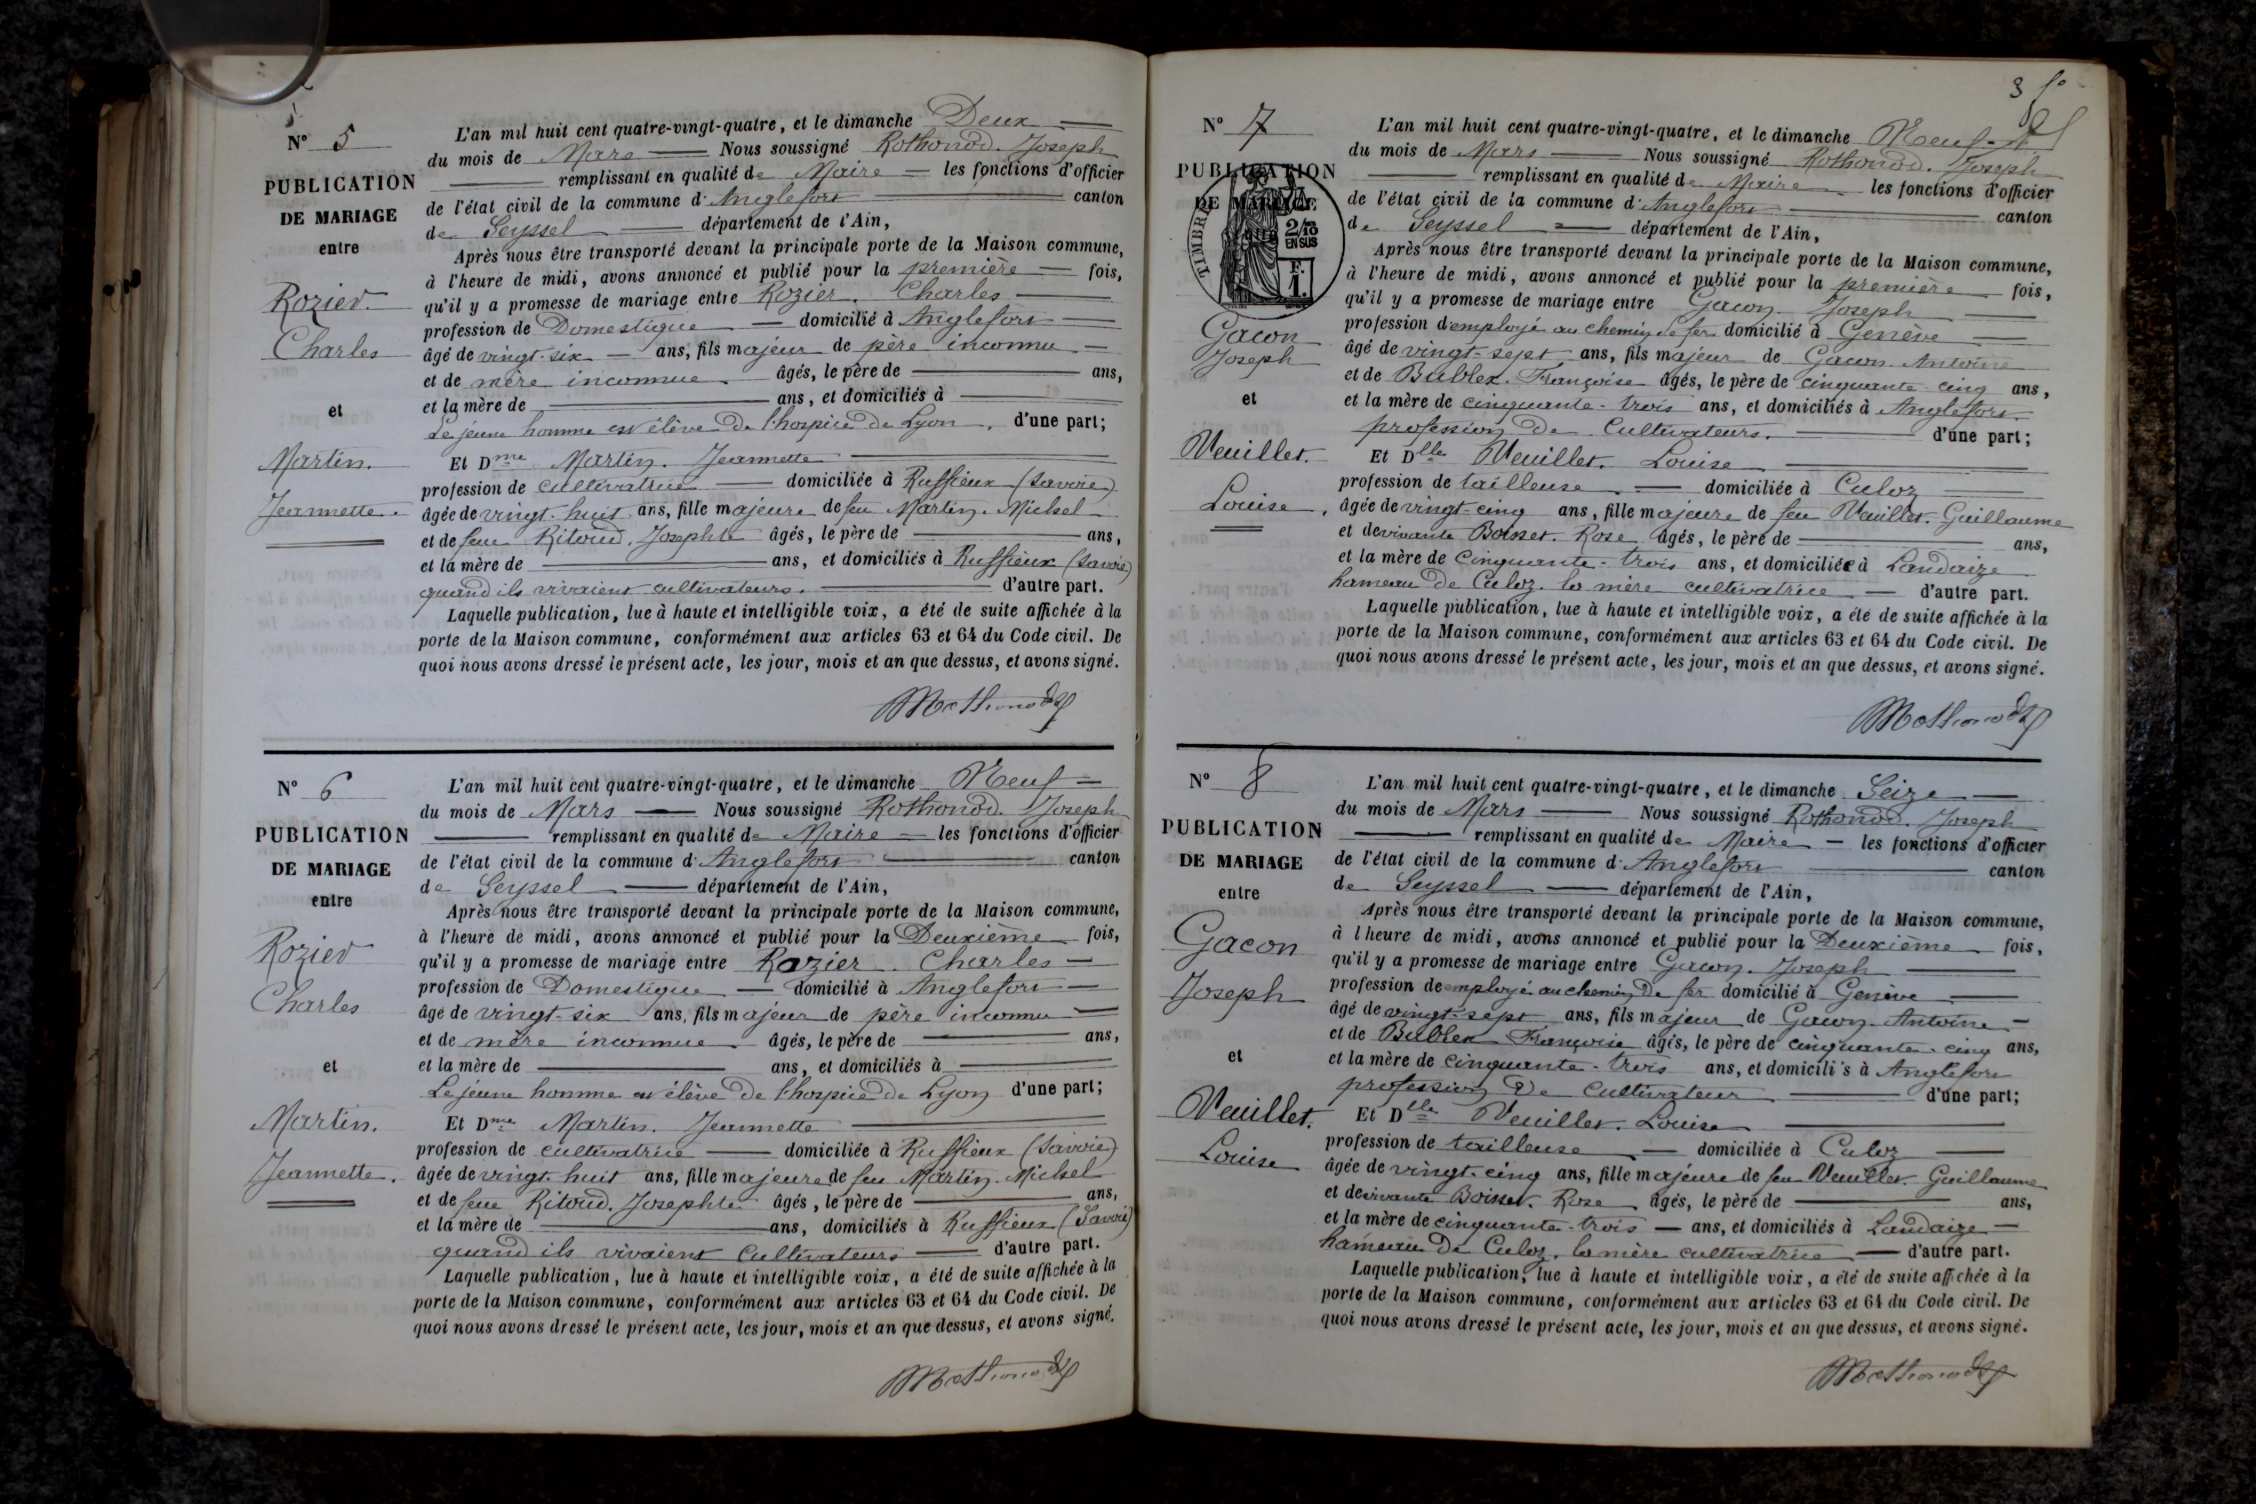 N° 5
PUBLICATION
DE MARIAGE
entre
Rozier
Charles
et
Martin.
Jeannette.
L'an mil huit cent quatre-vingt-quatre, et le dimanche Deux
du mois de Mars Nous soussigné Rothonod. Joseph
remplissant en qualité de Maire les fonctions d'officier
de l'état civil de la commune d'Anglefort canton
de Seyssel département de l'Ain,
Après nous être transporté devant la principale porte de la Maison commune,
à l'heure de midi, avons annoncé et publié pour la première fois,
qu'il y a promesse de mariage entre Rozier. Charles
profession de Domestique domicilié à Anglefort
âgé de vingt-six ans, fils majeur de père inconnu
et de mère inconnue âgés, le père de ans,
et la mère de ans, et domiciliés à
Le jeune homme est élève de l'hospice de Lyon. d'une part;
Et Dme Martin. Jeannette
profession de cultivatrice domiciliée à Ruffieux (Savoie)
âgée de vingt-huit ans, fille majeure de feu Martin. Michel
et de feue Ritoud. Josephte âgés, le père de ans,
et la mère de ans, et domiciliés à Ruffieux (Savoie)
quand ils vivaient cultivateurs. d'autre part.
Laquelle publication, lue à haute et intelligible voix, a été de suite affichée à la
porte de la Maison commune, conformément aux articles 63 et 64 du Code civil. De
quoi nous avons dressé le présent acte, les jour, mois et an que dessus, et avons signé.
N° 6
PUBLICATION
DE MARIAGE
entre
Rozier
Charles
et
Martin.
Jeannette.
L'an mil huit cent quatre-vingt-quatre, et le dimanche Neuf
du mois de Mars Nous soussigné Rothonod. Joseph
remplissant en qualité de Maire les fonctions d'officier
de l'état civil de la commune d'Anglefort canton
de Seyssel département de l'Ain,
Après nous être transporté devant la principale porte de la Maison commune,
à l'heure de midi, avons annoncé et publié pour la Deuxième fois,
qu'il y a promesse de mariage entre Rozier. Charles
profession de Domestique domicilié à Anglefort
âgé de vingt-six ans, fils majeur de père inconnu
et de mère inconnue âgés, le père de ans,
et la mère de ans, et domiciliés à
Le jeune homme est élève de l'hospice de Lyon d'une part;
Et Dme Martin. Jeannette
profession de cultivatrice domiciliée à Ruffieux (Savoie)
âgée de vingt-huit ans, fille majeure de feu Martin. Michel
et de feue Ritoud. Josephte âgés, le père de ans,
et la mère de ans, domiciliés à Ruffieux (Savoie)
quand ils vivaient Cultivateurs d'autre part.
Laquelle publication, lue à haute et intelligible voix, a été de suite affichée à la
porte de la Maison commune, conformément aux articles 63 et 64 du Code civil. De
quoi nous avons dressé le présent acte, les jour, mois et an que dessus, et avons signé.
3 fo
N° 7
PUBLICATION
DE MARIAGE
entre
TIMBRE
2/10
EN SUS
F.
1.
Gacon
Joseph
et
Veuillet.
Louise.
L'an mil huit cent quatre-vingt-quatre, et le dimanche Neuf
du mois de Mars Nous soussigné Rothonod. Joseph
remplissant en qualité de Maire les fonctions d'officier
de l'état civil de la commune d'Anglefort canton
de Seyssel département de l'Ain,
Après nous être transporté devant la principale porte de la Maison commune,
à l'heure de midi, avons annoncé et publié pour la première fois,
qu'il y a promesse de mariage entre Gacon Joseph
profession d'employé au chemin de fer domicilié à Genève
âgé de vingt-sept ans, fils majeur de Gacon Antoine
et de Bublex. Françoise âgés, le père de cinquante-cinq ans,
et la mère de cinquante-trois ans, et domiciliés à Anglefort.
profession de Cultivateurs. d'une part;
Et Dlle Veuillet. Louise
profession de tailleuse domiciliée à Culoz
âgée de vingt-cinq ans, fille majeure de feu Veuillet. Guillaume
et de vivante Boisset. Rose âgés, le père de ans,
et la mère de Cinquante-trois ans, et domiciliée à Landaize
hameau de Culoz. la mère cultivatrice d'autre part.
Laquelle publication, lue à haute et intelligible voix, a été de suite affichée à la
porte de la Maison commune, conformément aux articles 63 et 64 du Code civil. De
quoi nous avons dressé le présent acte, les jour, mois et an que dessus, et avons signé.
N° 8
PUBLICATION
DE MARIAGE
entre
Gacon
Joseph
et
Veuillet.
Louise
L'an mil huit cent quatre-vingt-quatre, et le dimanche Seize
du mois de Mars Nous soussigné Rothonod. Joseph
remplissant en qualité de Maire les fonctions d'officier
de l'état civil de la commune d'Anglefort canton
de Seyssel département de l'Ain,
Après nous être transporté devant la principale porte de la Maison commune,
à l'heure de midi, avons annoncé et publié pour la Deuxième fois,
qu'il y a promesse de mariage entre Gacon. Joseph
profession de employé au chemin de fer domicilié à Genève
âgé de vingt-sept ans, fils majeur de Gacon Antoine
et de Bublex Françoise âgés, le père de cinquante-cinq ans,
et la mère de cinquante-trois ans, et domiciliés à Anglefort
profession de cultivateur d'une part;
Et Dlle Veuillet. Louise
profession de tailleuse domiciliée à Culoz
âgée de vingt-cinq ans, fille majeure de feu Veuillet. Guillaume
et de vivante Boisset. Rose âgés, le père de ans,
et la mère de cinquante-trois ans, et domiciliés à Landaize
hameau de Culoz. la mère cultivatrice d'autre part.
Laquelle publication, lue à haute et intelligible voix, a été de suite affichée à la
porte de la Maison commune, conformément aux articles 63 et 64 du Code civil. De
quoi nous avons dressé le présent acte, les jour, mois et an que dessus, et avons signé.